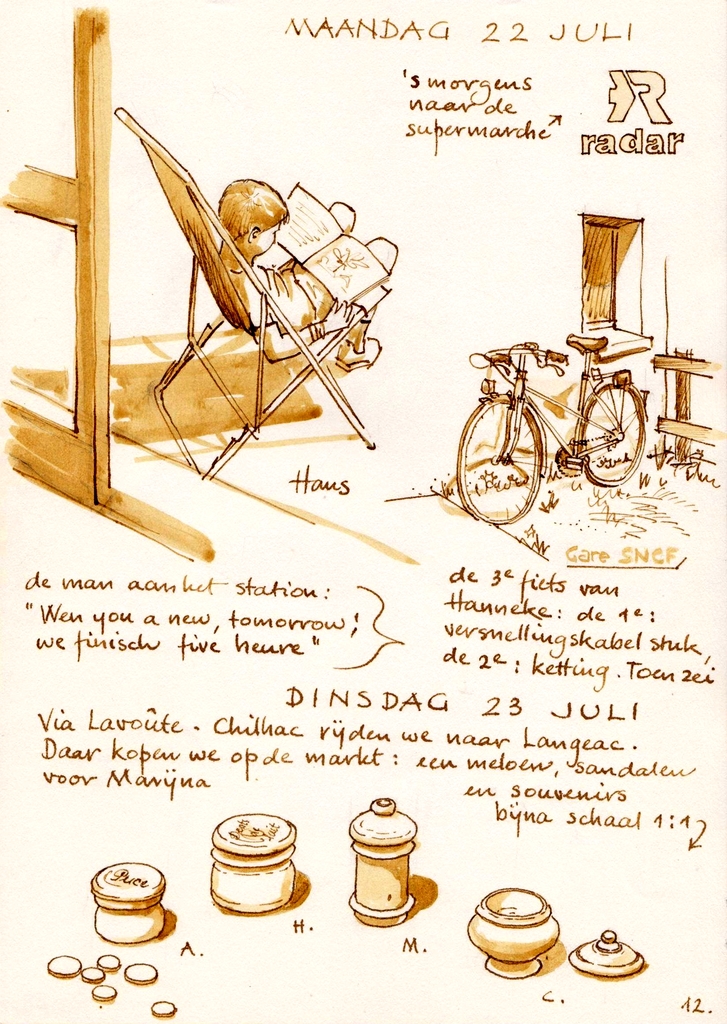 MAANDAG 22 JULI
's morgens
naar de
supermarché
R
radar
Hans
Gare SNCF
de man aan het station:
"Wen you a new, tomorrow!
we finisch five heure"
de 3e fiets van
Hanneke: de 1e:
versnellingskabel stuk,
de 2e: ketting. Toen zei
DINSDAG 23 JULI
Via Lavoûte-Chilhac rijden we naar Langeac.
Daar kopen we op de markt: een meloen, sandalen
voor Marijna
en souvenirs
bijna schaal 1:1
Puce
Petit
A.
H.
M.
C.
12.